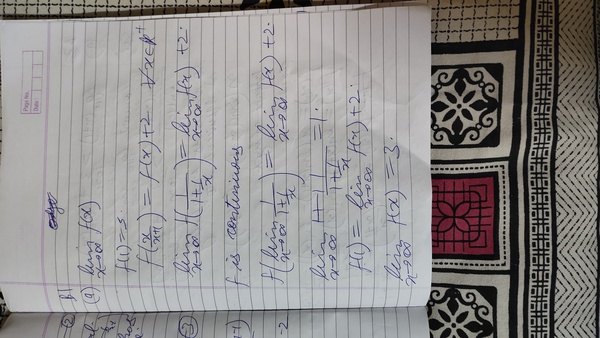 Page No.
Date
B1
(a) lim x→∞ f(x)
f(1) = 5.
f(x/x+1) = f(x)+2. ∀x∈R⁺
lim x→∞ f(1/1+1/x) = lim x→∞ f(x) + 2.
f is continuous
f(lim x→∞ 1/1+1/x) = lim x→∞ f(x) + 2.
lim x→∞ 1/1+1/x = 1.
f(1) = lim x→∞ f(x) + 2.
lim x→∞ f(x) = 3.